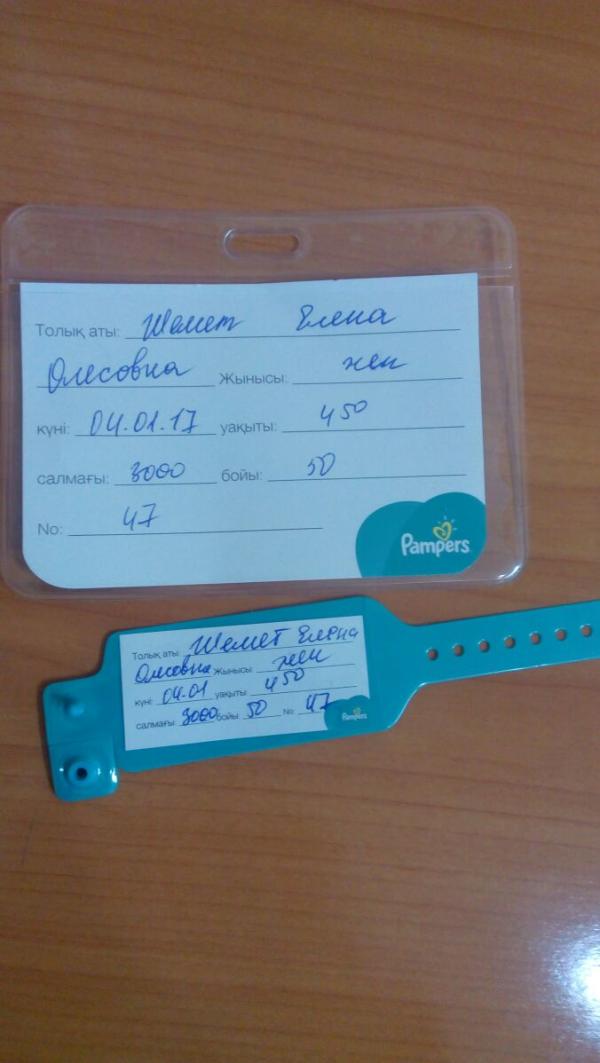 Толық аты: Шемет Елена
Олесовна Жынысы: жен
күні: 04.01.17 уақыты: 450
салмағы: 3000 бойы: 50
No: 47
Pampers
Толық аты: Шемет Елена
Олесовна Жынысы: жен
күні: 04.01 уақыты: 450
салмағы: 3000 бойы: 50 No: 47
Pampers